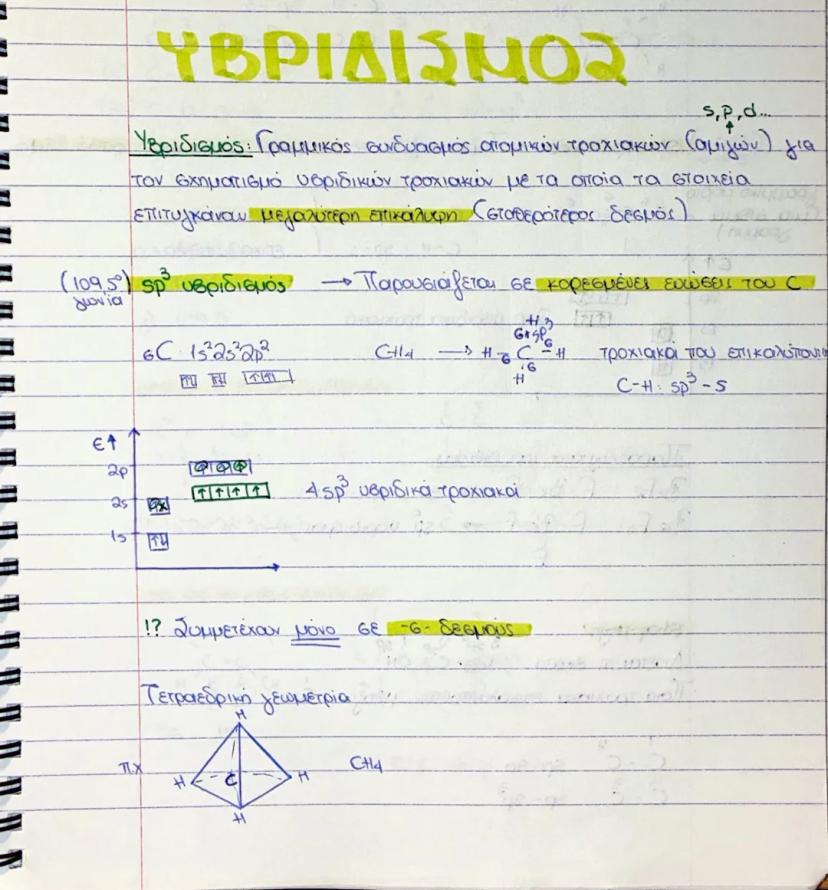 ΥΒΡΙΔΙΣΜΟΣ
s, p, d...
Υβριδισμός: Γραμμικός συνδυασμός ατομικών τροχιακών (αμιγών) για
τον σχηματισμό υβριδικών τροχιακών με τα οποία τα στοιχεία
επιτυγχάνουν μεγαλύτερη επικάλυψη (σταθερότερος δεσμός)
(109,5°) sp³ υβριδισμός → Παρουσιάζεται σε κορεσμένες ενώσεις του C
γωνία
H
σ sp³
₆C 1s²2s²2p² CH₄ → H -σ C -σ H τροχιακά που επικαλύπτονται
σ
H C-H: sp³-s
E↑
2p
2s 4sp³ υβριδικά τροχιακά
1s
!? Συμμετέχουν μόνο σε -σ- δεσμούς
Τετραεδρική γεωμετρία
H
πχ H C H CH₄
H